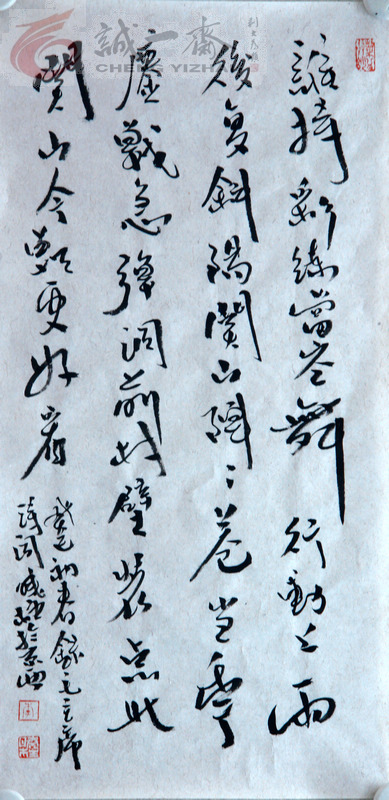 誠一齋
CHENG YIZHAI
誰持彩練當空舞 行動 雨
後复斜陽關山陣々蒼當年
鏖戰急彈洞前村壁裝點此
關山今朝更好看
初春錄毛主席